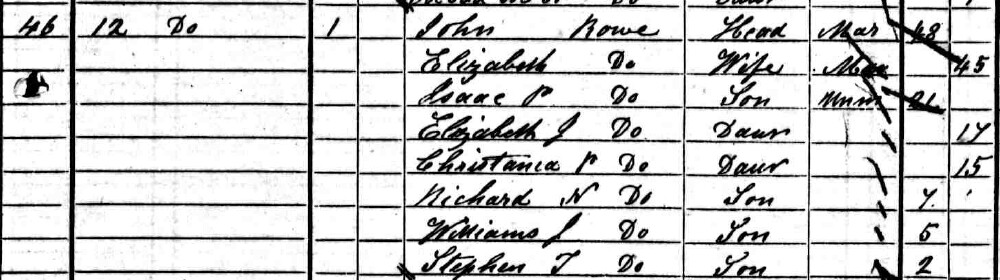 46 12 Do 1 John Rowe Head Mar 48
Elizabeth Do Wife Mar 45
Isaac P Do Son Unm 21
Elizabeth J Do Daur 17
Christania P Do Daur 15
Richard N Do Son 7
Williams J Do Son 5
Stephen T Do Son 2